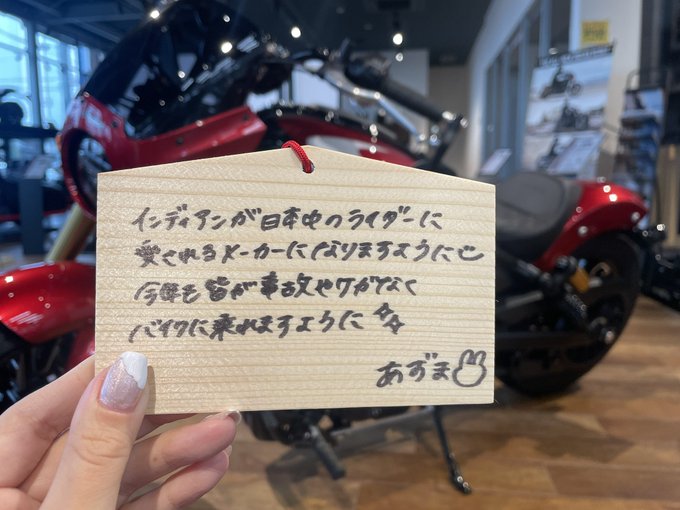 インディアンが日本中のライダーに
愛されるメーカーになりますように
今年も皆が事故やケガなく
バイクに乗れますように
あずま